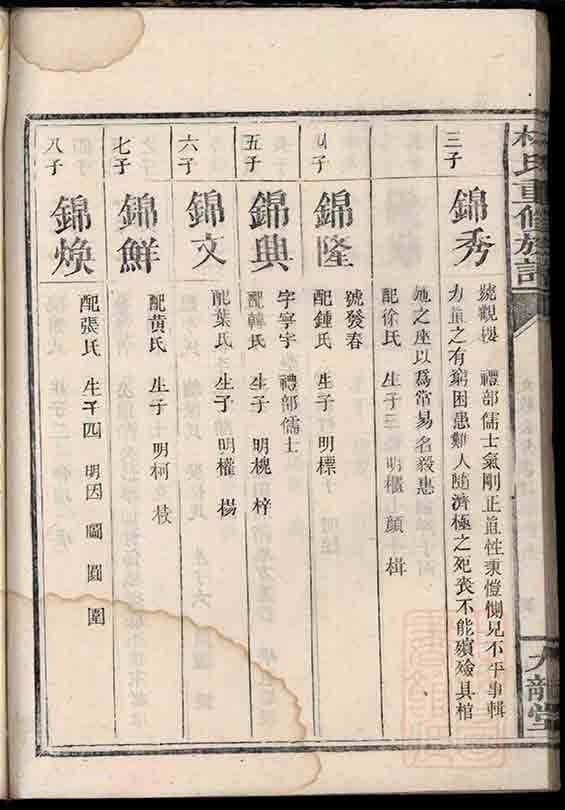 林氏重修族譜
九龍堂
三子 錦秀
號觀樓 禮部儒士氣剛正直性秉愷惻見不平事輯
力直之有窮困患難人隨濟極之死喪不能殯殮具棺
施之座以為常易名毅惠
配徐氏 生子三 明櫃 顔 楫
四子 錦隆
號發春
配鍾氏 生子 明標
五子 錦興
字寧宇 禮部儒士
配韓氏 生子 明槐 梓
六子 錦文
配葉氏 生子 明權 楊
七子 錦鮮
配黃氏 生子 明柯
八子 錦煥
配張氏 生子四 明因 圖 圓 圍